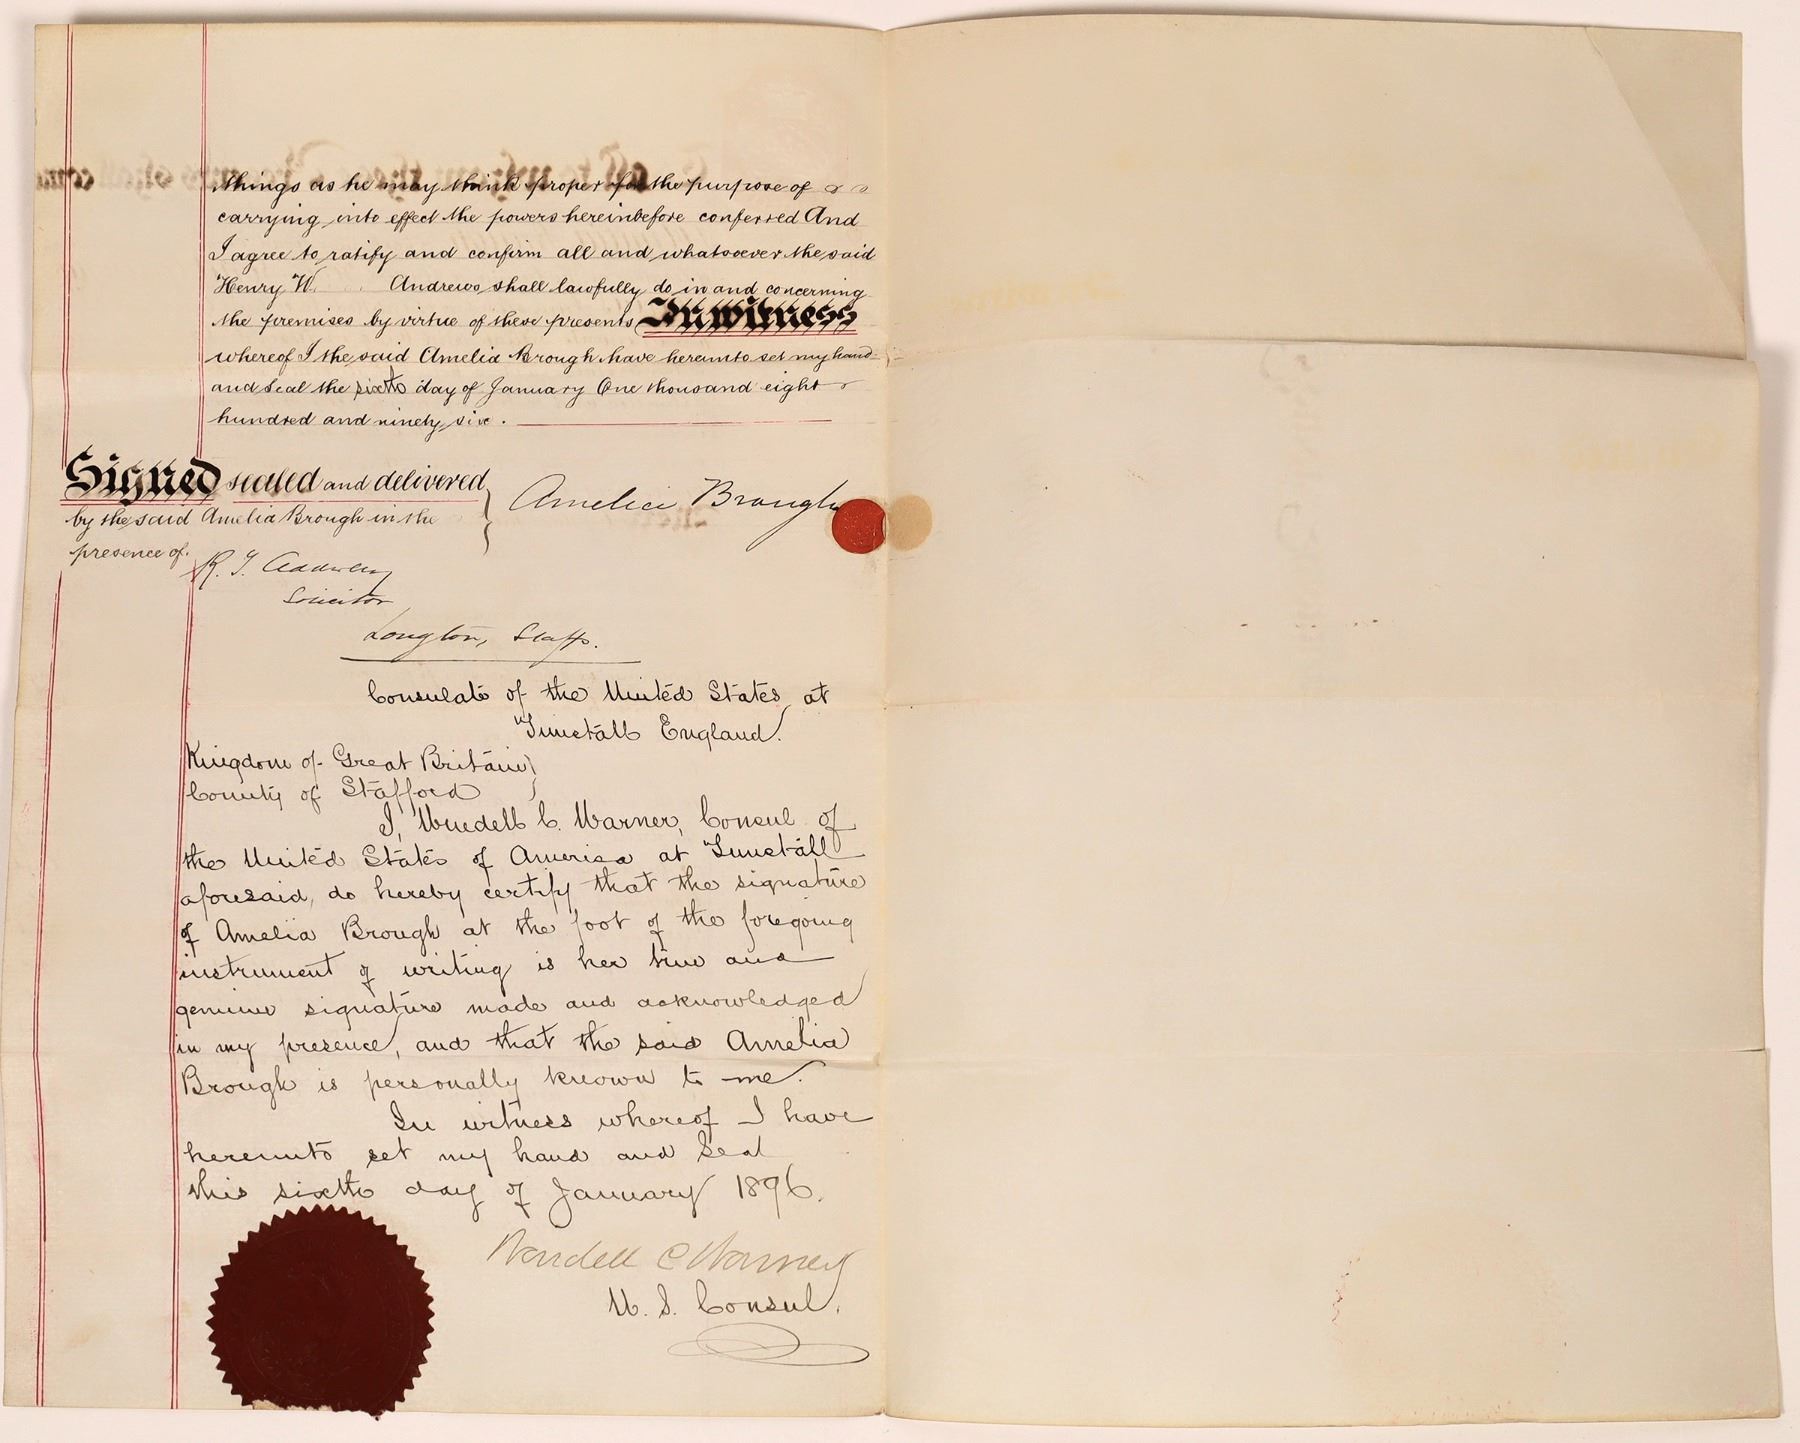 things as he may think proper for the purpose of
carrying into effect the powers hereinbefore conferred And
I agree to ratify and confirm all and whatsoever the said
Henry W. Andrews shall lawfully do in and concerning
the premises by virtue of these presents In witness
whereof I the said Amelia Brough have hereunto set my hand
and seal the sixth day of January One thousand eight
hundred and ninety six.
Signed sealed and delivered
by the said Amelia Brough in the
presence of
Amelia Brough
Solicitor
Longton, Staffs.
Consulate of the United States at
Tunstall England.
Kingdom of Great Britain
County of Stafford
I, Wendell C. Warner, Consul of
the United States of America at Tunstall
aforesaid, do hereby certify that the signature
of Amelia Brough at the foot of the foregoing
instrument of writing is her true and
genuine signature made and acknowledged
in my presence, and that the said Amelia
Brough is personally known to me.
In witness whereof I have
hereunto set my hand and Seal
this sixth day of January 1896.
Wendell C Warner
U. S. Consul.